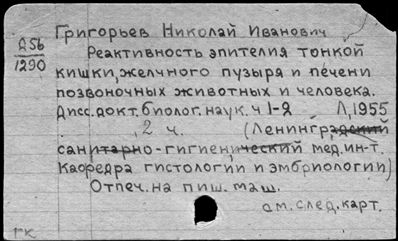 Григорьев Николай Иванович
А56
1290
Реактивность эпителия тонкой
кишки, желчного пузыря и печени
позвоночных животных и человека.
Дисс.докт.биолог.наук. ч 1-2 Л,1955
,2 ч. (Ленинградский
санитарно-гигиенический мед.ин-т.
Кафедра гистологии и эмбриологии)
Отпеч.на пиш.маш.
см.след.карт.
гк